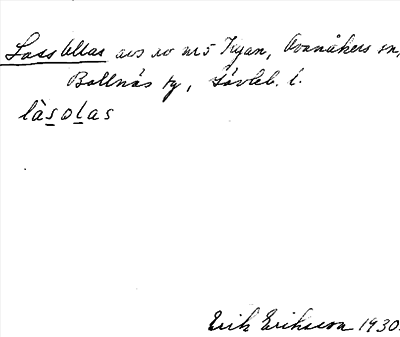 Lass Ollas avs av nr 5 Tigan, Ovanåkers sn,
Bollnäs tg, Gävleb. l.
làsolas
Erik Eriksson 1930.